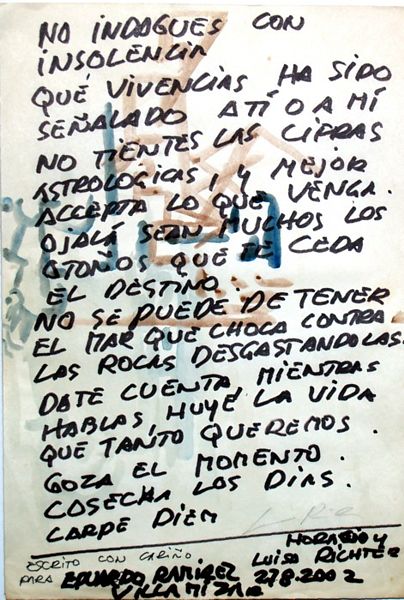 NO INDAGUES CON
INSOLENCIA
QUÉ VIVENCIAS HA SIDO
SEÑALADO ATÍ O A MÍ
NO TIENTES LAS CIFRAS
ASTROLOGICAS, Y MEJOR
ACCEPTA LO QUE VENGA.
OJALÁ SEAN MUCHOS LOS
OTOÑOS QUE TE CEDA
EL DESTINO
NO SE PUEDE DETENER
EL MAR QUE CHOCA CONTRA
LAS ROCAS DESGASTANDOLAS.
DATE CUENTA, MIENTRAS
HABLAS, HUYE LA VIDA
QUE TANTO QUEREMOS.
GOZA EL MOMENTO.
COSECHA LOS DIAS.
CARPE DIEM
HORACIO Y
ESCRITO CON CARIÑO LUISA RICHTER
PARA EDUARDO RAMIREZ 27.8.2002
VILLAMIZAR